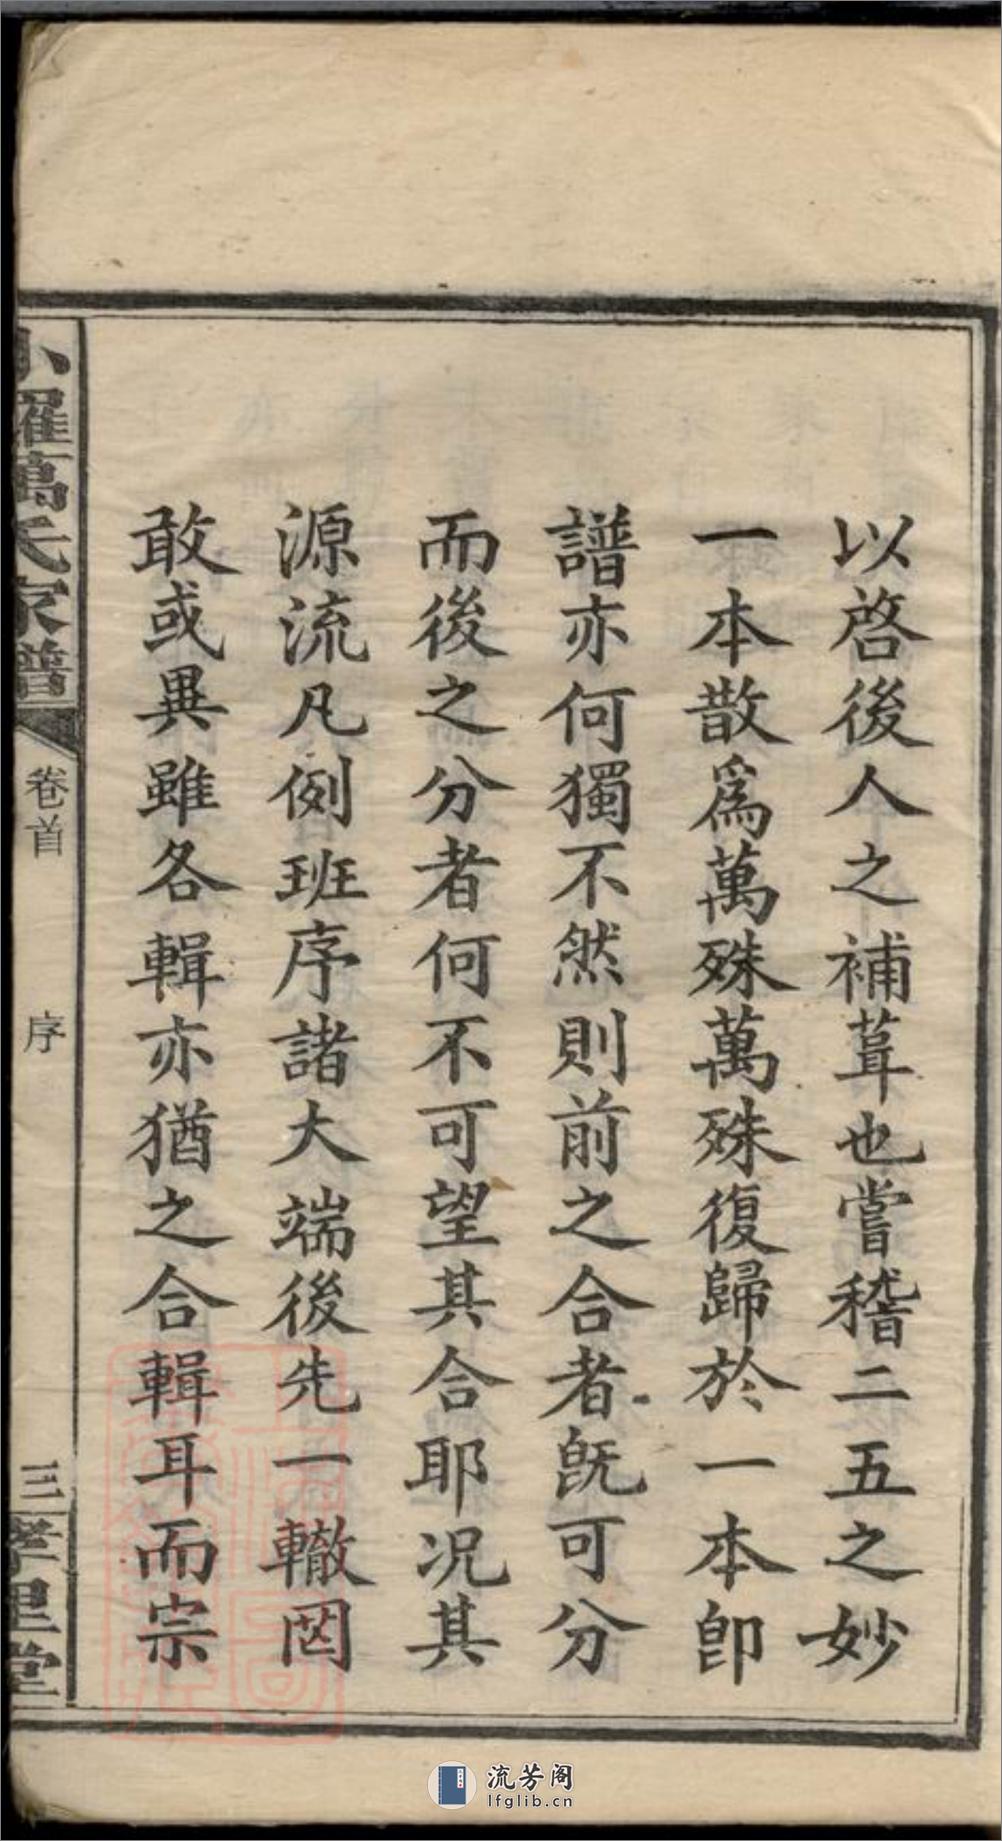 以啓後人之補葺也嘗稽二五之妙
一本散爲萬殊萬殊復歸於一本卽
譜亦何獨不然則前之合者旣可分
而後之分者何不可望其合耶况其
源流凡例班序諸大端後先一轍罔
敢或異雖各輯亦猶之合輯耳而宗
小羅萬氏家譜
卷首
序
三
孝里堂
流芳阁
lfglib.cn